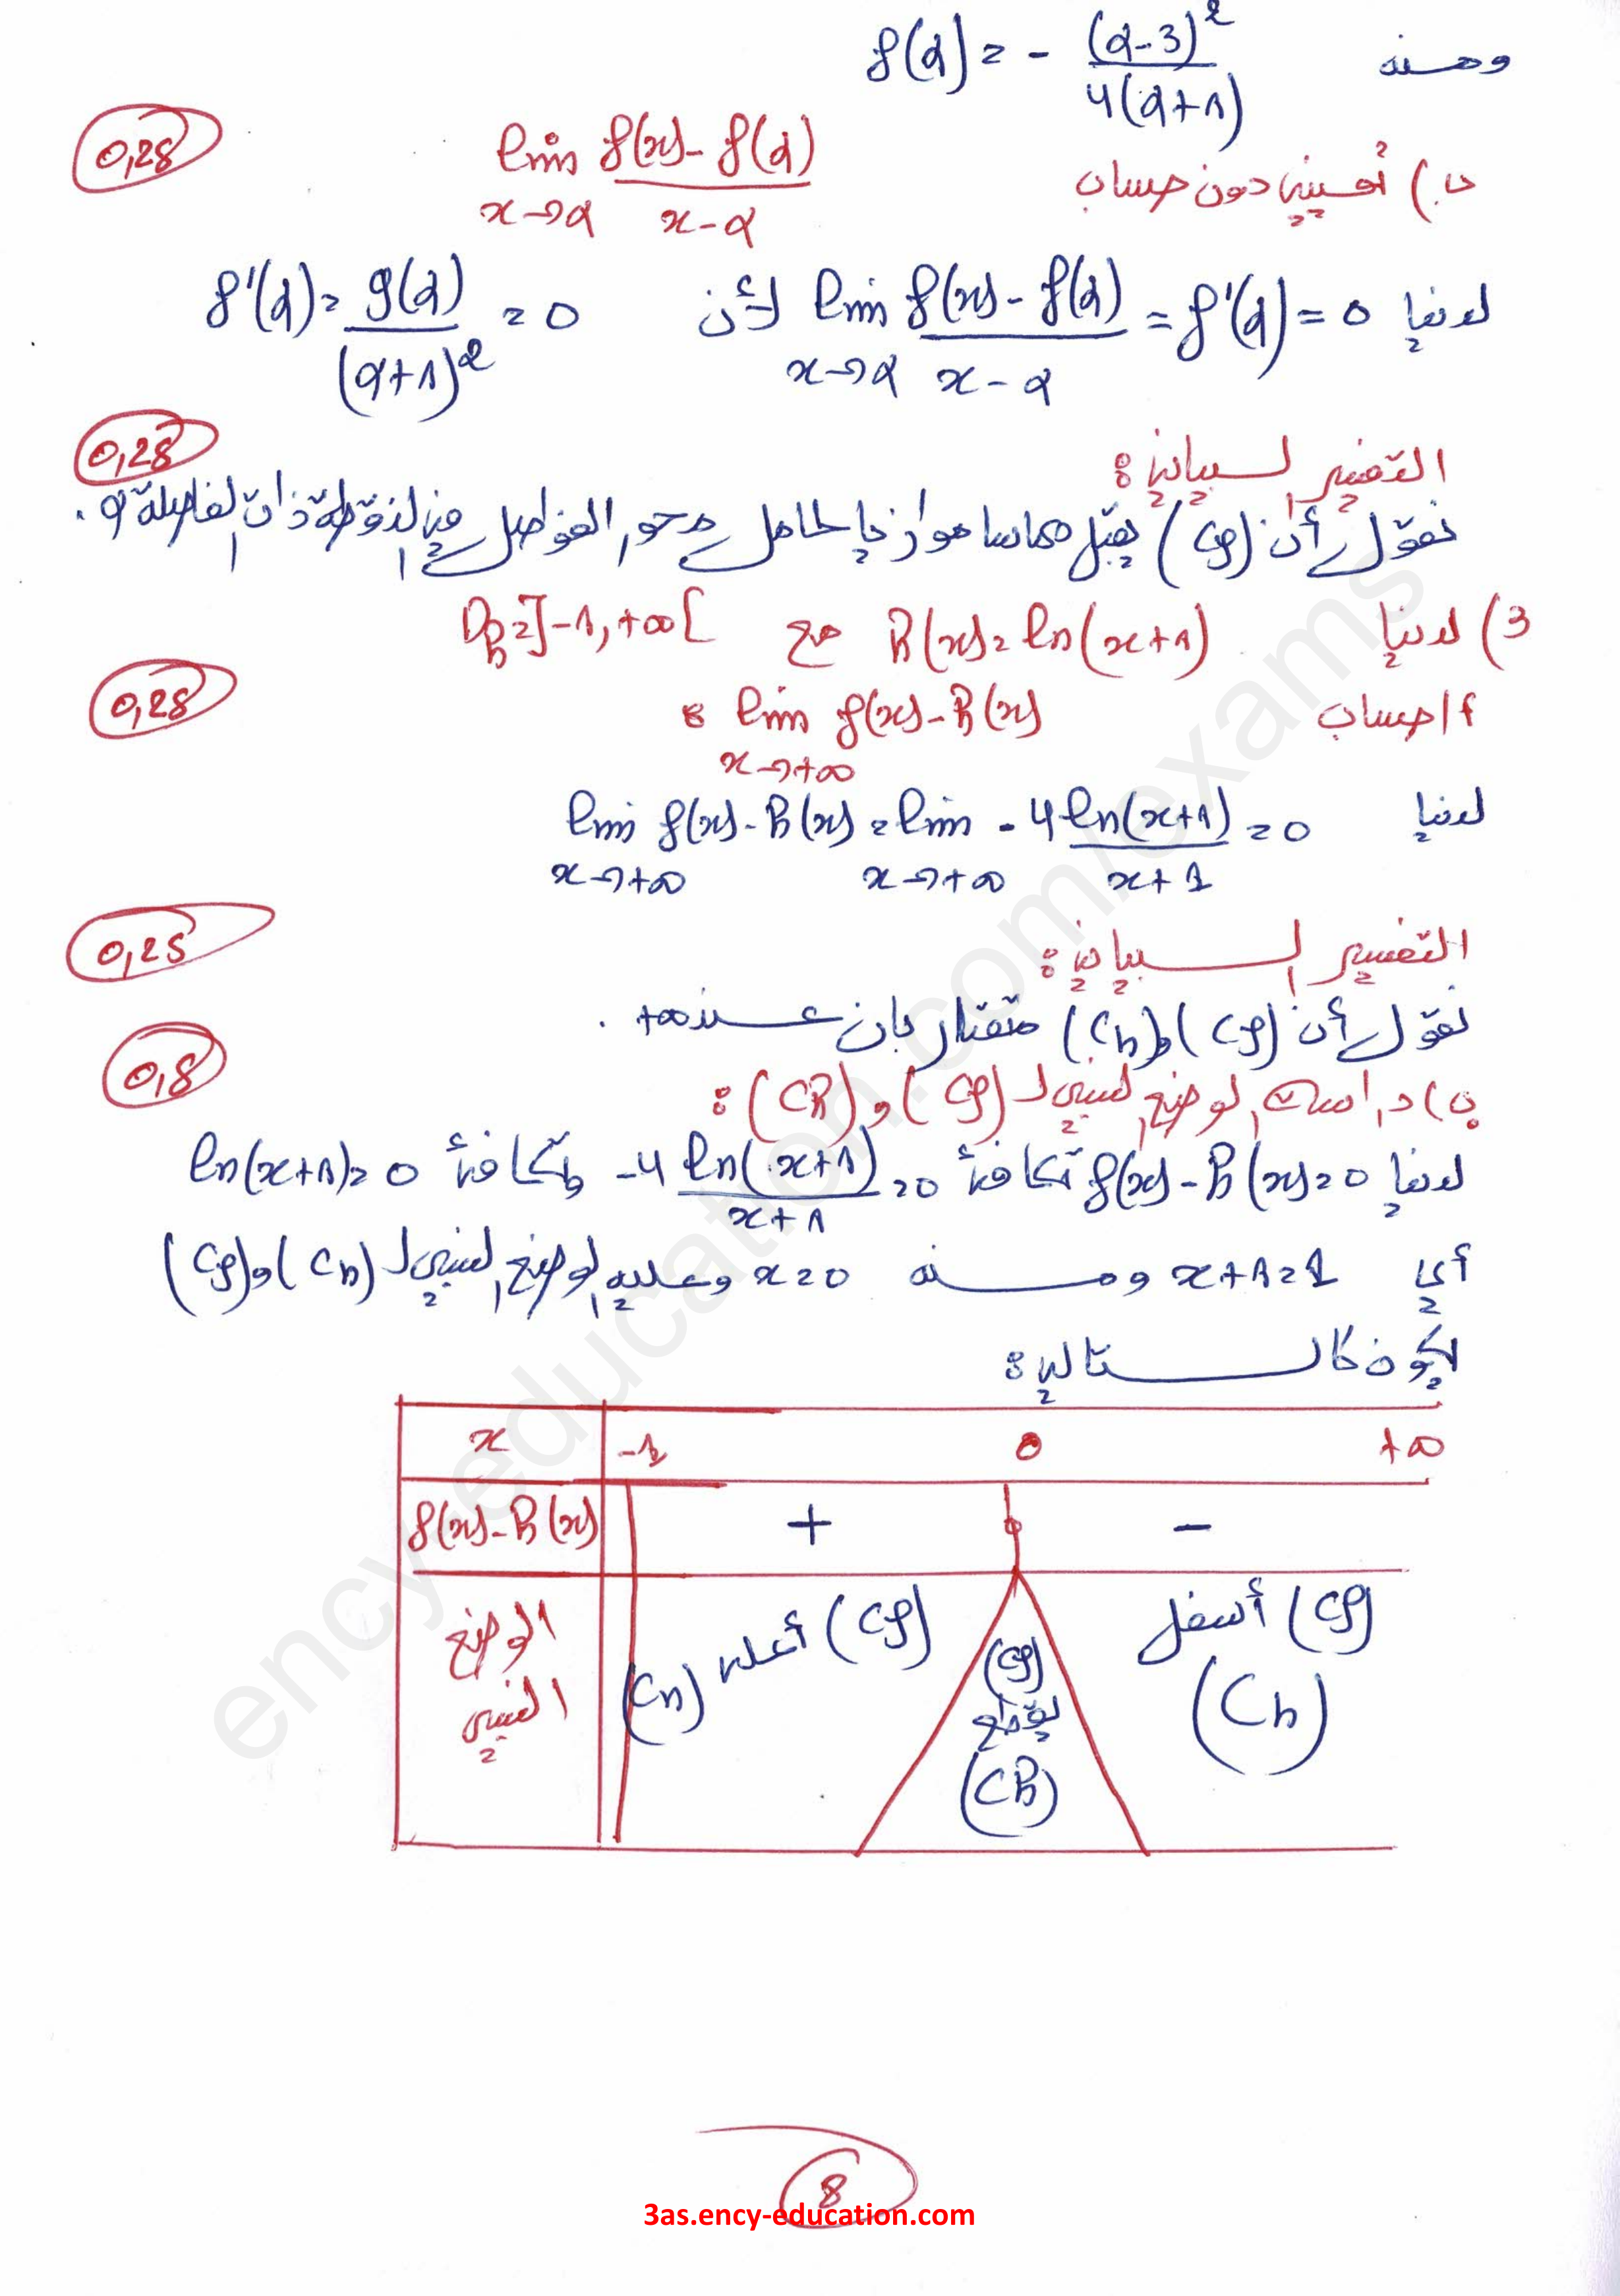 ومنه f(α) = - (α-3)² / 4(α+1)
ب) تعيين دون حساب lim x→α f(x)-f(α) / x-α
0,25
لدينا lim x→α f(x)-f(α) / x-α = f'(α) = 0 لأن f'(α) = g(α) / (α+1)² = 0
0,25
التفسير البياني:
نقول أن (Cf) يقبل مماسا موازيا لحامل محور الفواصل في النقطة ذات الفاصلة α.
3) لدينا h(x) = ln(x+1) مع Dh = ]-1, +∞[
أ/ حساب lim x→+∞ f(x)-h(x) :
0,25
لدينا lim x→+∞ f(x)-h(x) = lim x→+∞ -4 ln(x+1) / x+1 = 0
0,25
التفسير البياني:
نقول أن (Cf) و (Ch) متقاربان عند +∞.
0,5
ب) دراسة الوضع النسبي لـ (Cf) و (Ch) :
لدينا f(x)-h(x) = 0 تكافئ -4 ln(x+1) / x+1 = 0 وتكافئ ln(x+1) = 0
أي x+1 = 1 ومنه x = 0 وعليه الوضع النسبي لـ (Ch) و (Cf)
يكون كالتالي:
x -1 0 +∞
f(x)-h(x) + 0 -
الوضع النسبي
(Cf) أعلى (Ch)
(Cf) يقطع (Ch)
(Cf) أسفل (Ch)
8
3as.ency-education.com
ency-education.com/exams